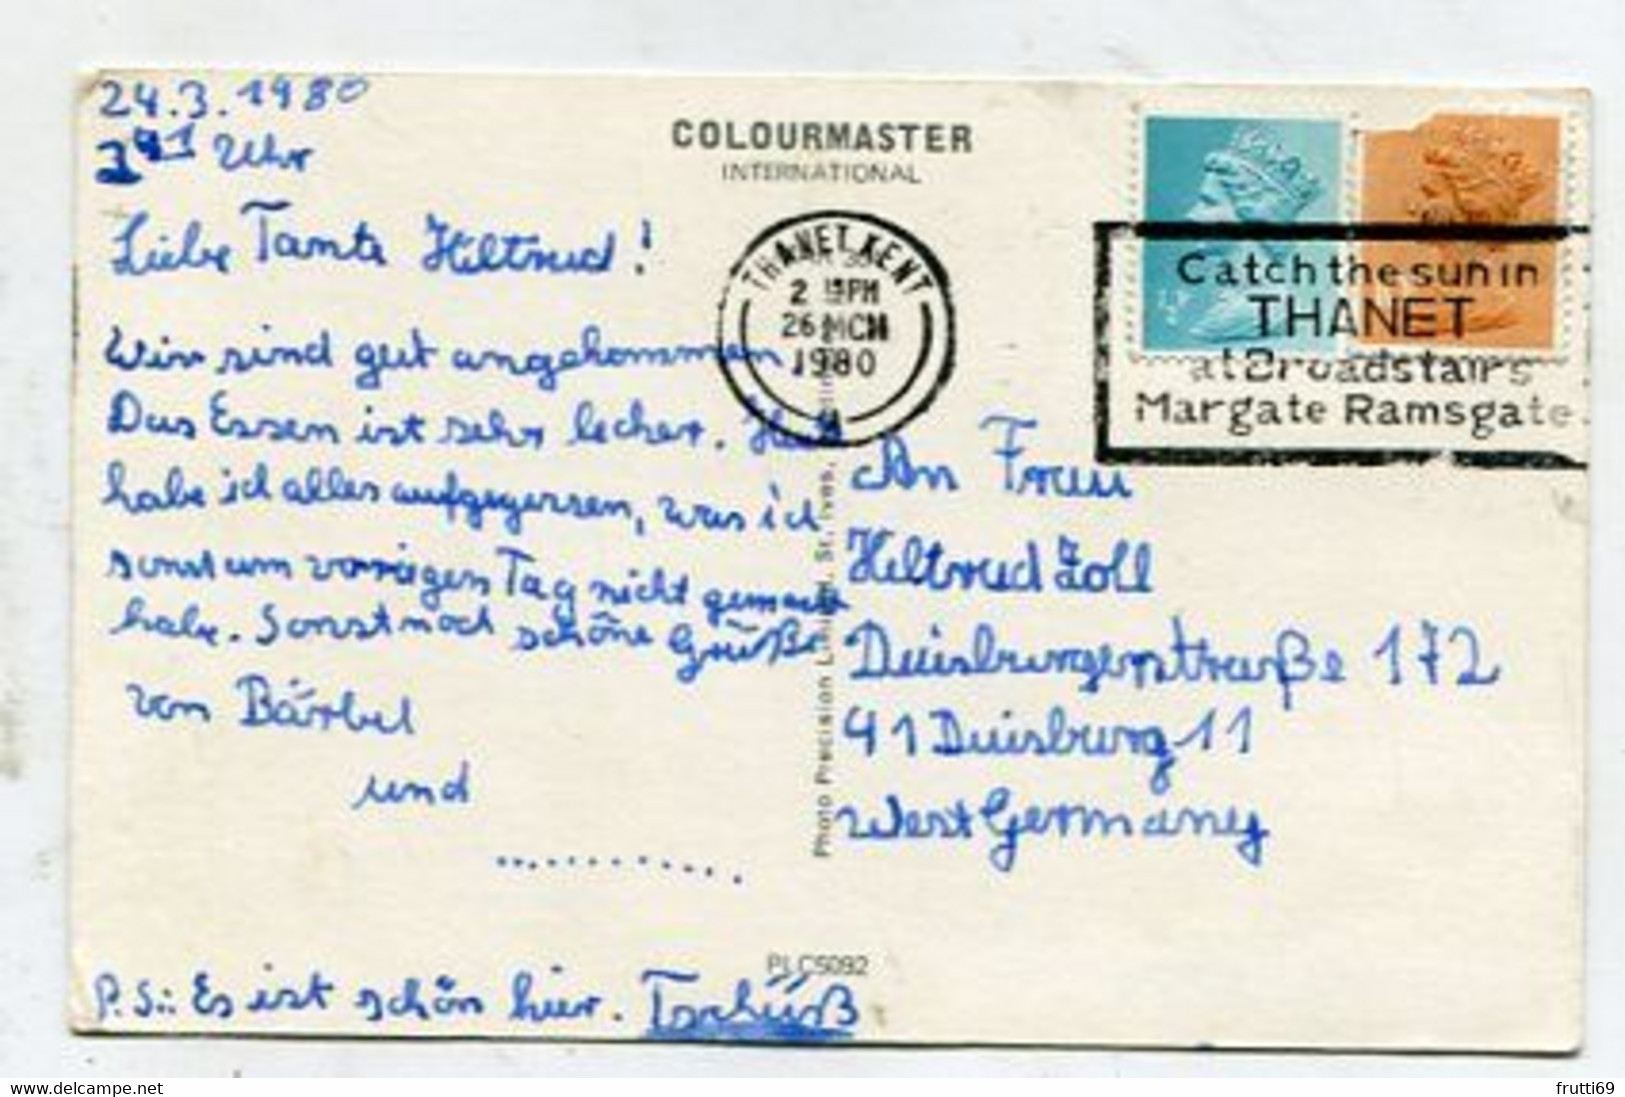 24.3.1980
7 41 Uhr
Liebe Tante Hiltrud!
Wir sind gut angekommen
Das Essen ist sehr lecker.
habe ich alles aufgegessen, was ich
sonst am vorrigen Tag nicht gemacht
habe. Sonst noch schöne Grüße
von Bärbel
und
...........
P.S.: Es ist schön hier. Tschüß
COLOURMASTER
INTERNATIONAL
THANET KENT
2 PM
26 MCH
1980
Catch the sun in
THANET
at Broadstairs
Margate Ramsgate
An Frau
Hiltrud Zoll
Duisburgerstraße 172
41 Duisburg 11
West Germany
Photo Precision St. Ives,
PLC5092
www.delcampe.net
frutti69